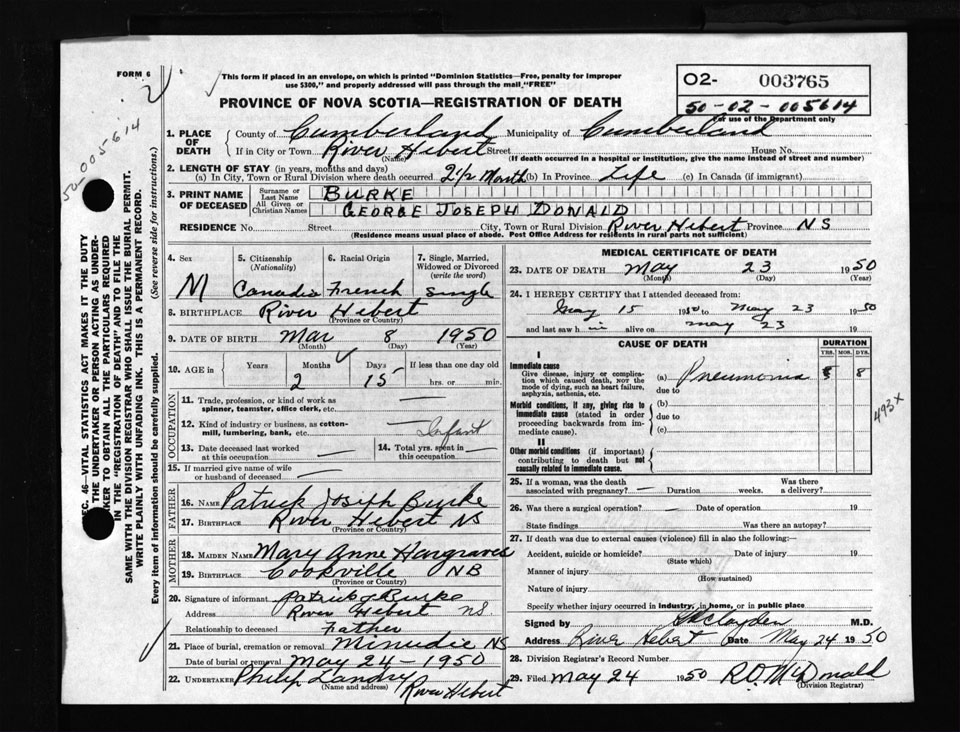 FORM 6
This form if placed in an envelope, on which is printed "Dominion Statistics—Free, penalty for improper
use $300," and properly addressed will pass through the mail "FREE"
O2- 003765
50-02-005614
For use of the Department only
PROVINCE OF NOVA SCOTIA—REGISTRATION OF DEATH
50-005614
SEC. 46—VITAL STATISTICS ACT MAKES IT THE DUTY
OF THE UNDERTAKER OR PERSON ACTING AS UNDER-
TAKER TO OBTAIN ALL THE PARTICULARS REQUIRED
IN THE "REGISTRATION OF DEATH" AND TO FILE THE
SAME WITH THE DIVISION REGISTRAR WHO SHALL ISSUE THE BURIAL PERMIT.
WRITE PLAINLY WITH UNFADING INK. THIS IS A PERMANENT RECORD.
Every item of information should be carefully supplied. (See reverse side for instructions.)
1. PLACE OF DEATH County of Cumberland Municipality of Cumberland
If in City or Town River Hebert Street House No.
(Name) (If death occurred in a hospital or institution, give the name instead of street and number)
2. LENGTH OF STAY (in years, months and days)
(a) In City, Town or Rural Division where death occurred 2½ Month (b) In Province Life (c) In Canada (if immigrant)
3. PRINT NAME OF DECEASED Surname or Last Name BURKE
All Given or Christian Names GEORGE JOSEPH DONALD
RESIDENCE No. Street City, Town or Rural Division River Hebert Province NS
(Residence means usual place of abode. Post Office Address for residents in rural parts not sufficient)
4. Sex 5. Citizenship (Nationality) 6. Racial Origin 7. Single, Married, Widowed or Divorced (write the word)
M Canadia French Single
8. BIRTHPLACE River Hebert
(Province or Country)
9. DATE OF BIRTH Mar 8 1950
(Month) (Day) (Year)
10. AGE in Years Months Days If less than one day old
2 15 hrs. or min.
OCCUPATION
11. Trade, profession, or kind of work as
spinner, teamster, office clerk, etc.
12. Kind of industry or business, as cotton-
mill, lumbering, bank, etc. Infant
13. Date deceased last worked at this occupation
14. Total yrs. spent in this occupation
15. If married give name of wife
or husband of deceased
FATHER
16. NAME Patrick Joseph Burke
17. BIRTHPLACE River Hebert NS
(Province or Country)
MOTHER
18. MAIDEN NAME Mary Anne Hargraves
19. BIRTHPLACE Cookville NB
(Province or Country)
20. Signature of informant Patrick J Burke
Address River Hebert NS.
Relationship to deceased Father
21. Place of burial, cremation or removal Minudie NS
Date of burial or removal May 24 - 1950
22. UNDERTAKER Philip Landry
(Name and address) River Hebert
MEDICAL CERTIFICATE OF DEATH
23. DATE OF DEATH May 23 1950
(Month) (Day) (Year)
24. I HEREBY CERTIFY that I attended deceased from:
May 15 1950 to May 23 1950
and last saw h im alive on May 23 19
CAUSE OF DEATH DURATION
YRS. MOS. DYS.
I
Immediate cause
Give disease, injury or complica-
tion which caused death, not the
mode of dying, such as heart failure,
asphyxia, asthenia, etc.
(a) Pneumonia 8
due to
Morbid conditions, if any, giving rise to
immediate cause (stated in order
proceeding backwards from im-
mediate cause).
(b)
due to
(c)
493x
II
Other morbid conditions (if important)
contributing to death but not
causally related to immediate cause.
25. If a woman, was the death
associated with pregnancy? — Duration weeks. Was there a delivery?
26. Was there a surgical operation? — Date of operation 19
State findings Was there an autopsy?
27. If death was due to external causes (violence) fill in also the following:—
Accident, suicide or homicide? Date of injury 19
(State which)
Manner of injury
(How sustained)
Nature of injury
Specify whether injury occurred in industry, in home, or in public place
Signed by Clayden M.D.
Address River Hebert Date May 24 1950
28. Division Registrar's Record Number
29. Filed May 24 1950 R.O. McDonald
(Division Registrar)